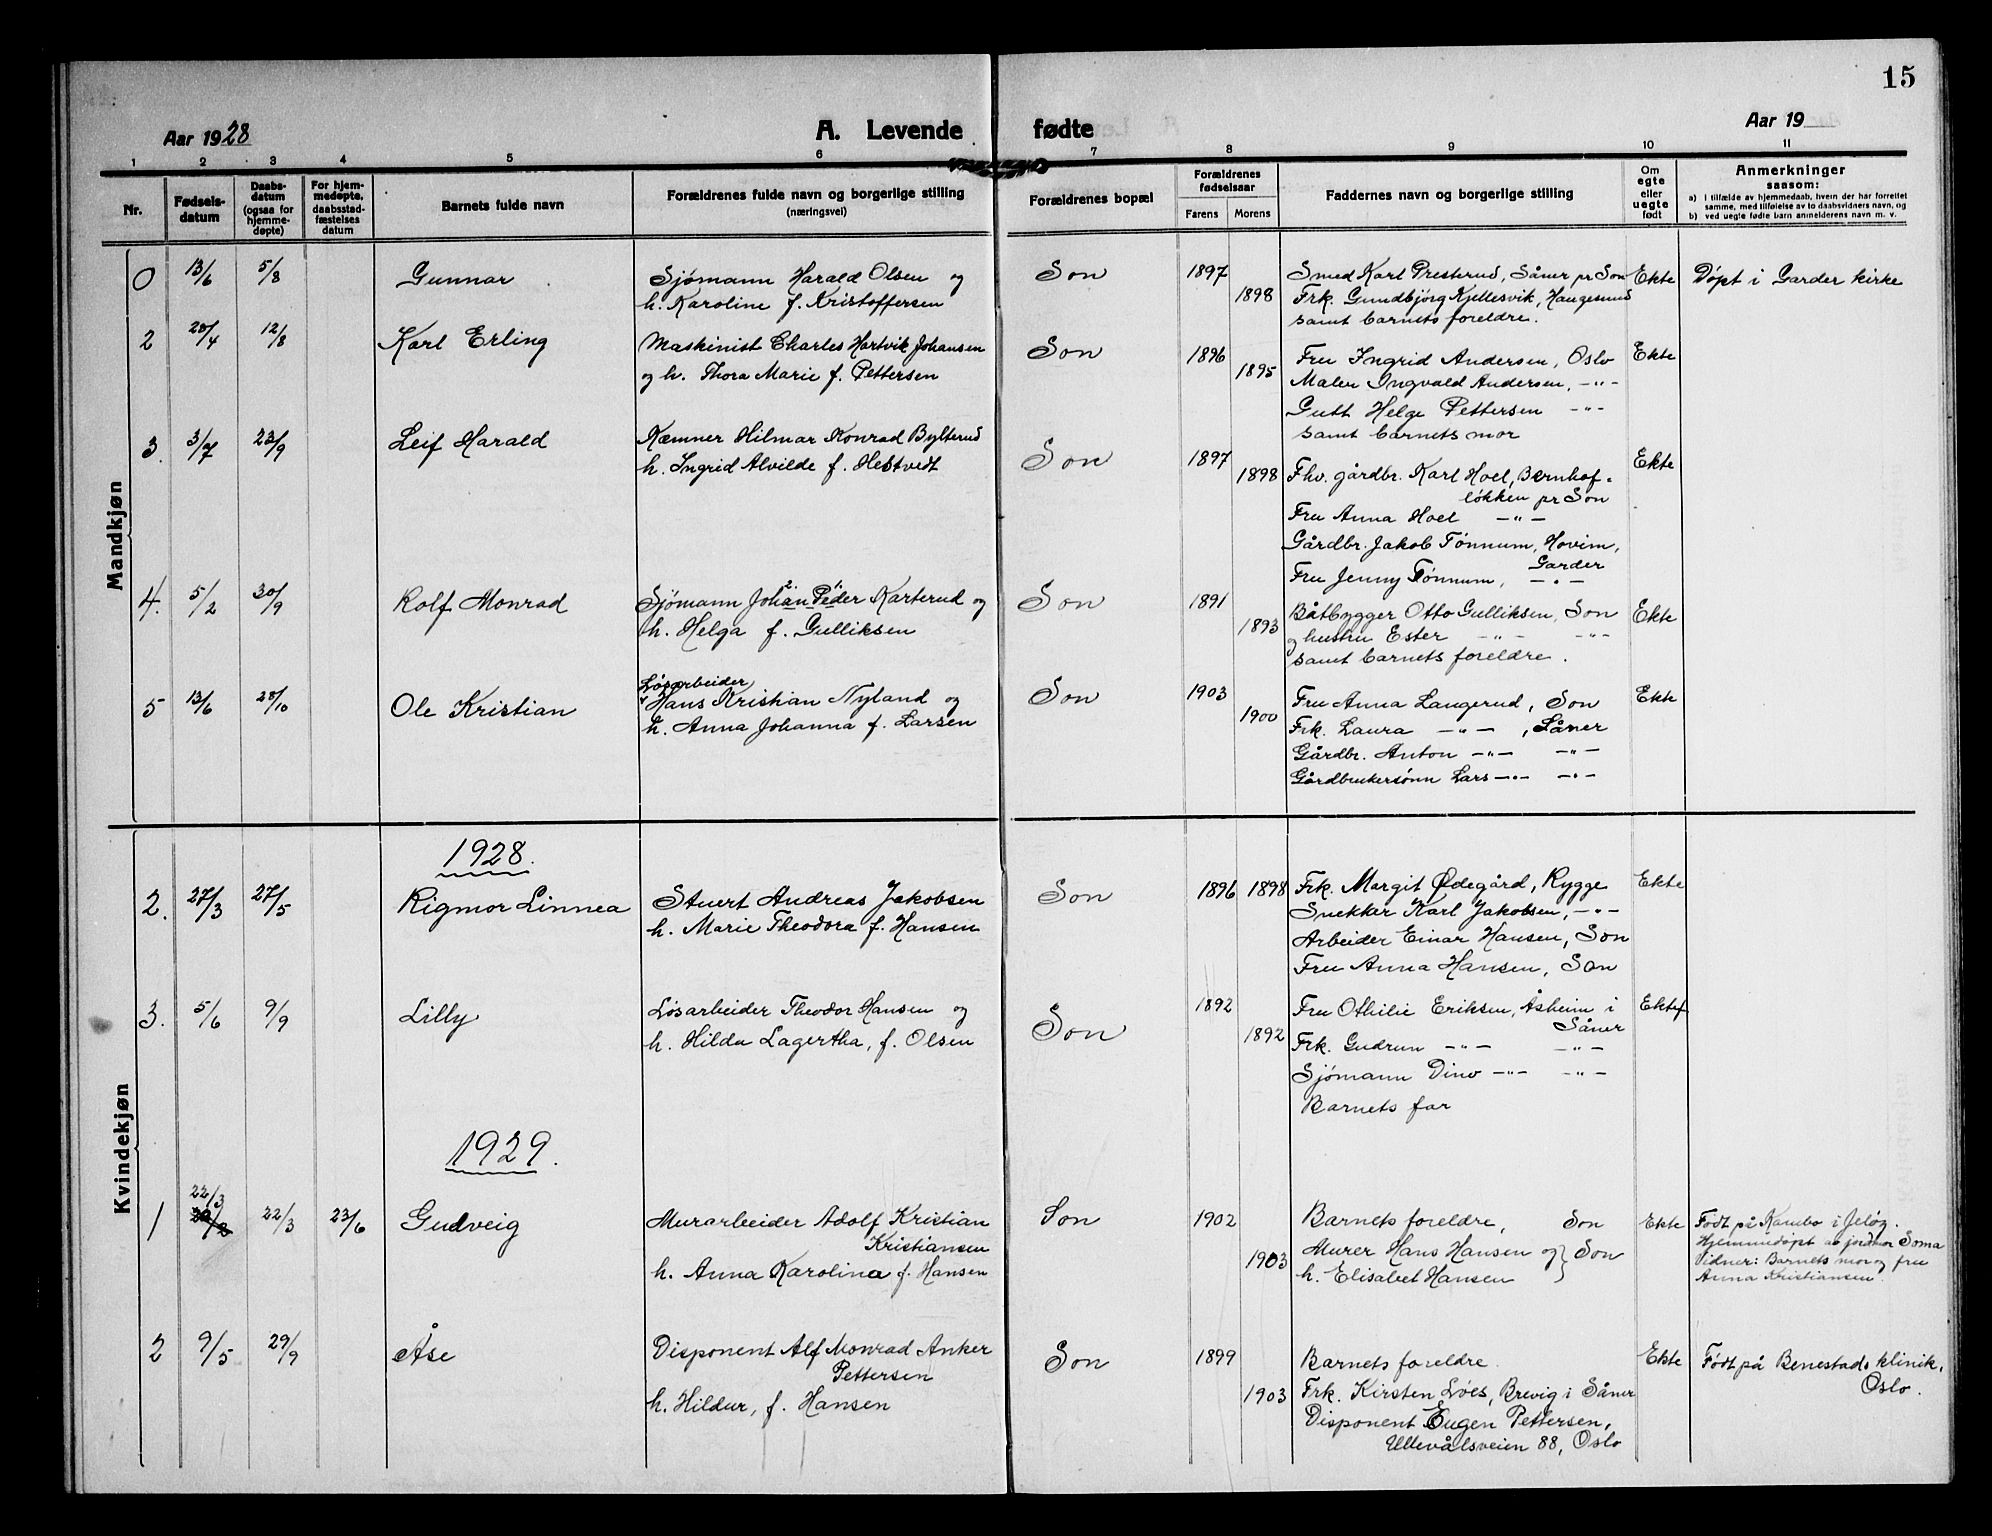 15
Aar 1928
A. Levende fødte
Aar 19
1 2 3 4 5 6 7 8 9 10 11
Nr.
Fødsels-
datum
Daabs-
datum
(ogsaa for
hjemme-
døpte)
For hjem-
medøpte,
daabsstad-
fæstelses
datum
Barnets fulde navn
Forældrenes fulde navn og borgerlige stilling
(næringsvei)
Forældrenes bopæl
Forældrenes
fødselsaar
Farens Morens
Faddernes navn og borgerlige stilling
Om
egte
eller
uegte
født
Anmerkninger
saasom:
a) i tilfælde av hjemmedaab, hvem der har forrettet
samme, med tilføielse av to daabsvidners navn, og
b) ved uegte fødte barn anmelderens navn m. v.
Mandkjøn
0 13/6 5/8 Gunnar
Sjømann Harald Olsen og
h. Karoline f. Kristoffersen
Son 1897 1898
Smed Karl Presterud, Såner pr Son
Frk. Gundbjörg Kjellesvik, Haugesund
samt barnets foreldre.
Ekte
Döpt i Garder kirke
2 28/4 12/8 Karl Erling
Maskinist Charles Hartvik Johansen
og h. Thora Marie f. Pettersen
Son 1896 1895
Fru Ingrid Andersen, Oslo
Maler Ingvald Andersen, -"-
Gutt Helge Pettersen -"-
samt barnets mor
Ekte
3. 3/7 23/9 Leif Harald
Kæmner Hilmar Konrad Bylterud
h. Ingrid Alvilde f. Hestvedt
Son 1897 1898
Fhv. gårdbr. Karl Hoel, Bernhof-
lökken pr Son
Fru Anna Hoel -"-
Gårdbr. Jakob Tönnum, Hovim,
Garder
Fru Jenny Tönnum, -"-
Ekte
4. 5/2 30/9 Rolf Monrad
2. 1.
Sjömann Johan Peder Karterud og
h. Helga f. Gulliksen
Son 1891 1893
Båtbygger Otto Gulliksen, Son
og hustru Ester -"- -"-
samt barnets foreldre.
Ekte
5 13/6 28/10 Ole Kristian
Løsarbeider
Hans Kristian Nyland og
h. Anna Johanna f. Larsen
Son 1903 1900
Fru Anna Langerud, Son
Frk. Laura -"-, Såner
Gårdbr. Anton -"- -"-
Gårdbrukersönn Lars -"- -"-
Ekte
Kvindekjøn
1928.
2. 27/3 27/5 Rigmor Linnea
Stuert Andreas Jakobsen
h. Marie Theodora f. Hansen
Son 1896 1898
Frk. Margit Ødegård, Rygge
Snekker Karl Jakobsen, -"-
Arbeider Einar Hansen, Son
Fru Anna Hansen, Son
Ekte
3. 5/6 9/9 Lilly
Løsarbeider Theodor Hansen og
h. Hilda Lagertha, f. Olsen
Son 1892 1892
Fru Othilie Eriksen, Åsheim i
Såner
Frk. Gudrun -"- -"-
Sjömann Dino -"- -"-
Barnets far
1929.
1 22/3 22/3 23/6 Gudveig
Murarbeider Adolf Kristian
Kristiansen
h. Anna Karolina f. Hansen
Son 1902 1903
Barnets foreldre, Son
Murer Hans Hansen og } Son
h. Elisabet Hansen
Ekte
Födt på Kambo i Jelöy.
Hjemmedöpt av jordmor Soma
Vidner: Barnets mor og fru
Anna Kristiansen.
2 9/5 29/9 Åse
Disponent Alf Monrad Anker
Pettersen
h. Hildur, f. Hansen
Son 1899 1903
Barnets foreldre.
Frk. Kirsten Löes, Brevig i Såner
Disponent Eugen Pettersen,
Ullevålsveien 88, Oslo
Ekte
Födt på Benestads klinik,
Oslo.